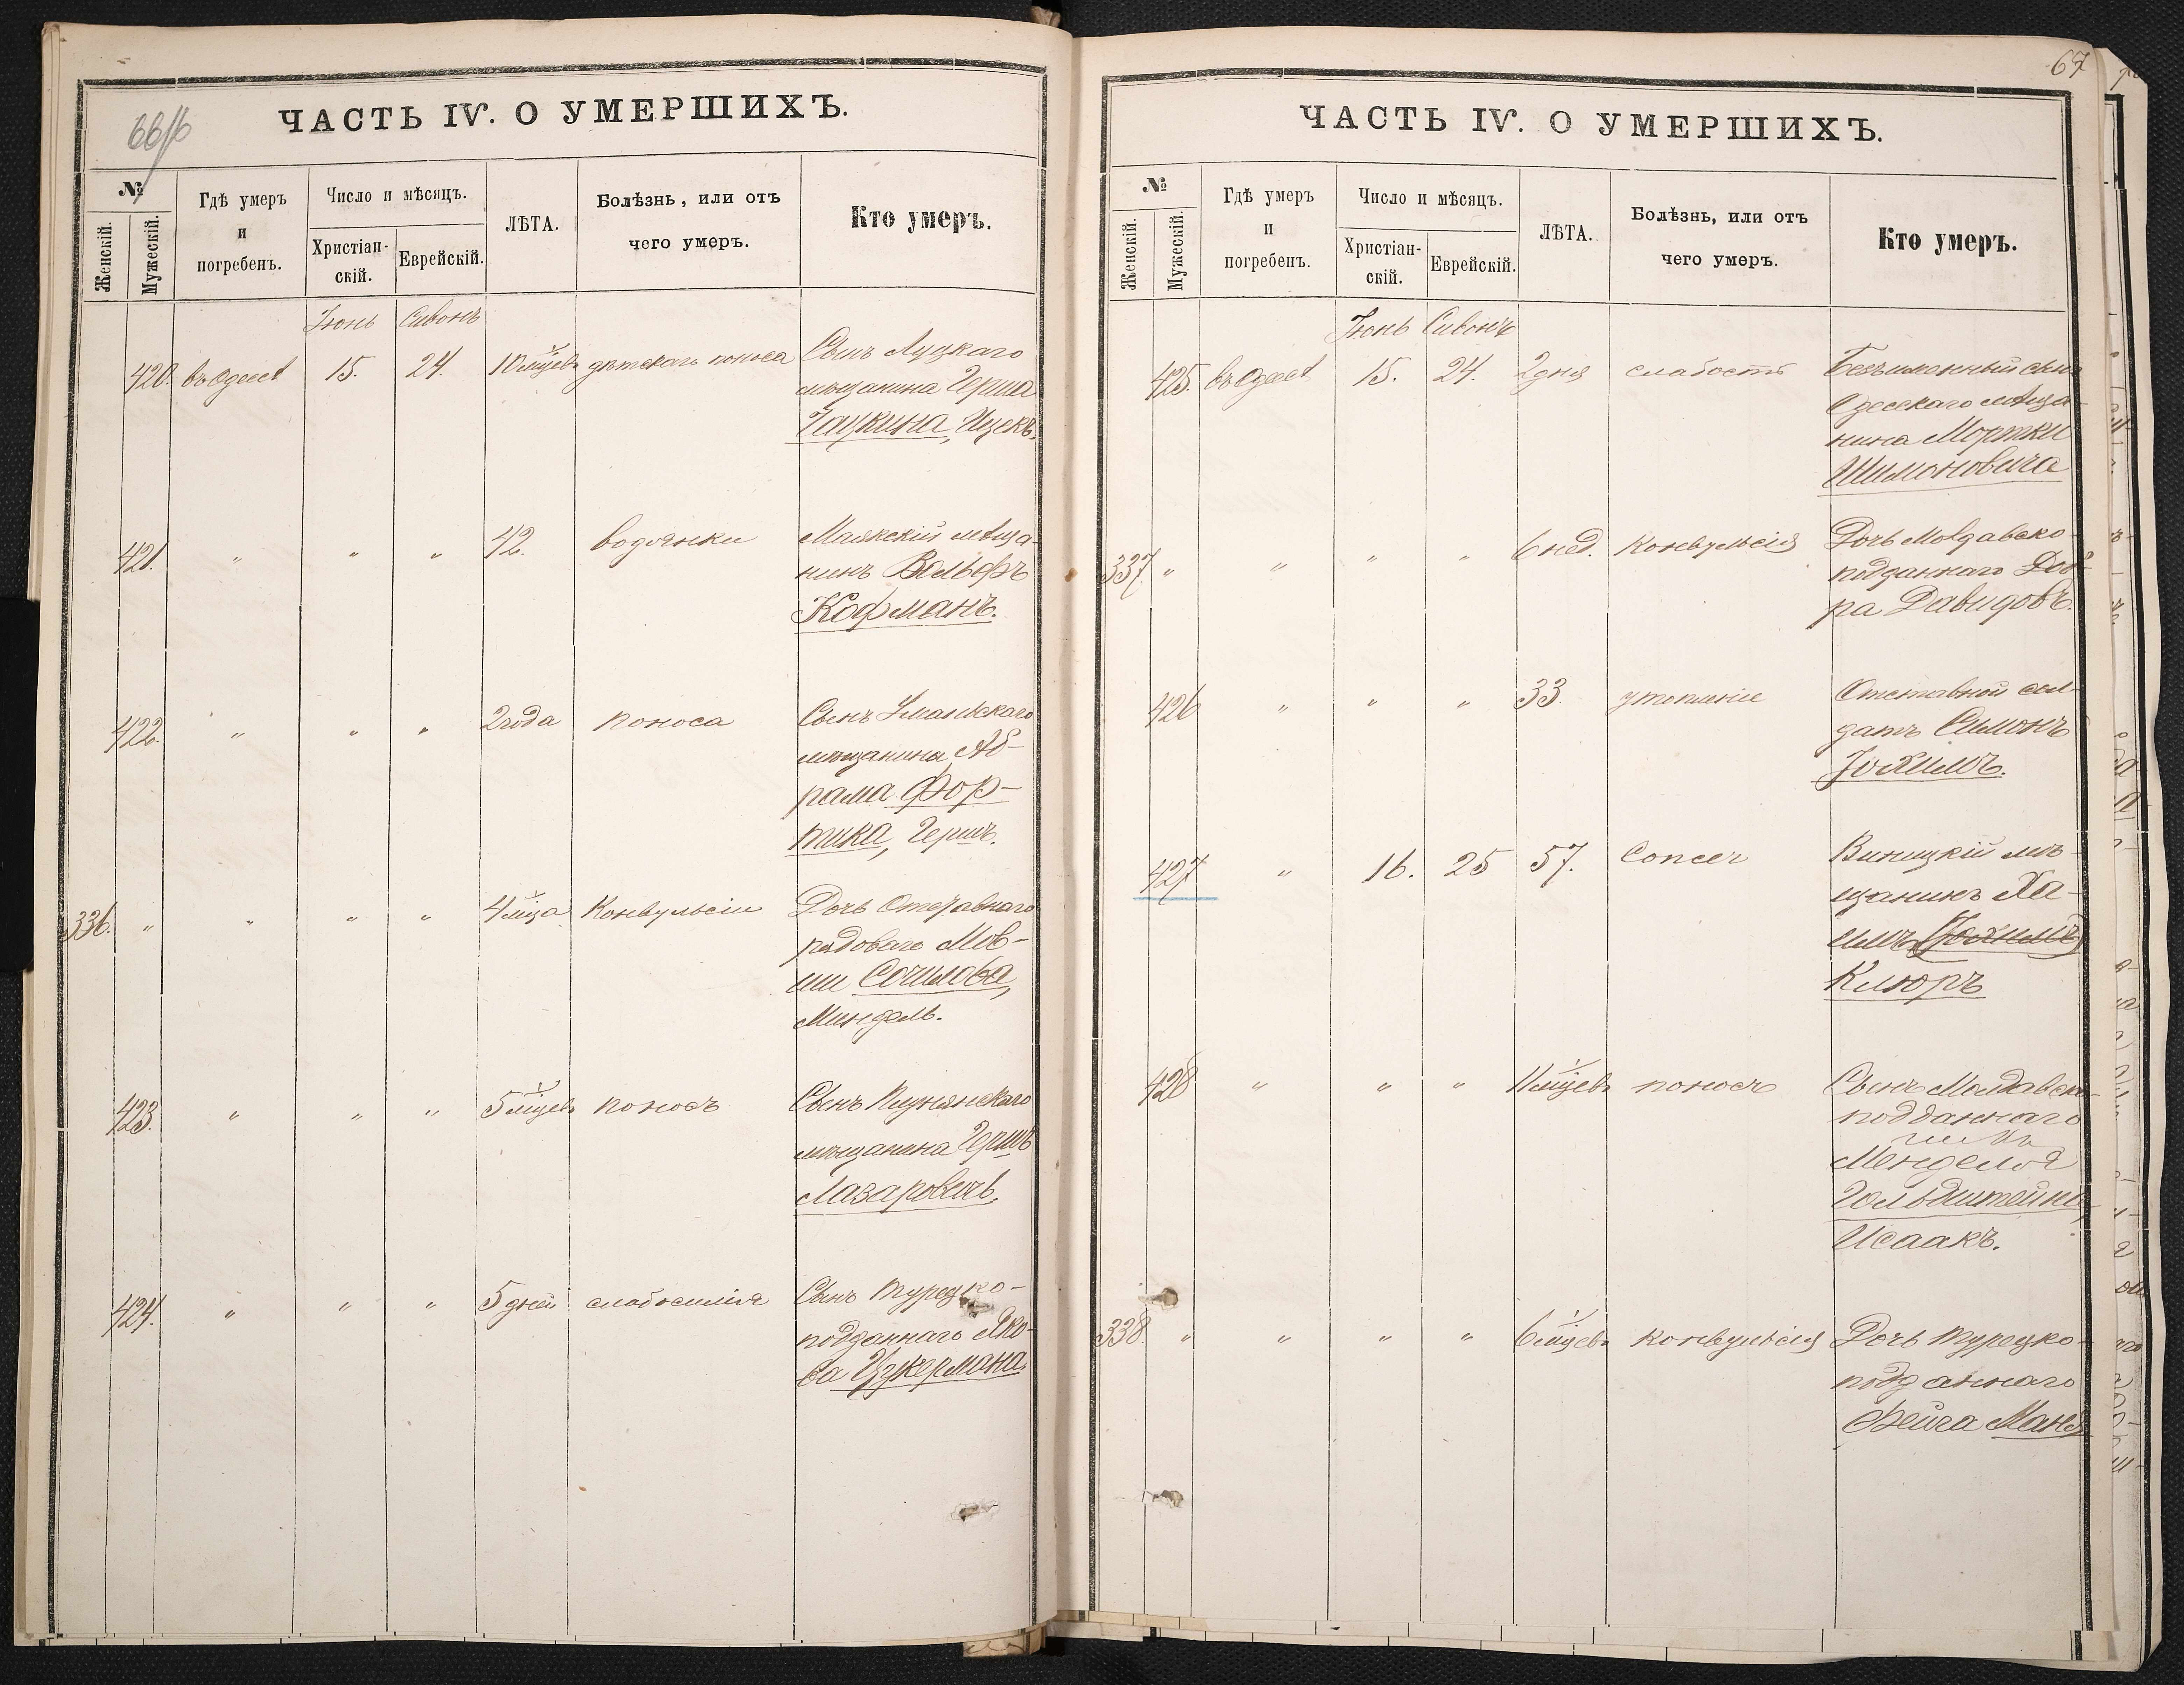 66/б
ЧАСТЬ IV. О УМЕРШИХЪ.
№
Женскій.
Мужескій.
Гдѣ умеръ
и
погребенъ.
Число и мѣсяцъ.
Христіан-
скій.
Еврейскій.
ЛѢТА.
Болѣзнь, или отъ
чего умеръ.
Кто умеръ.
Іюнь Сивонъ
420. въ Одессѣ 15. 24. 10 мцевъ дѣтскаго поноса Сынъ Луцкаго
мѣщанина Герша
Чацкина, Ицекъ.
421. " " " 42. водянки Маякскій мѣща-
нинъ Вольфъ
Кофманъ.
422. " " " 2 года поноса Сынъ Уманскаго
мѣщанина Аб-
рама Фор-
тика, Гершъ.
336. " " " " 4 мца Конвульсіи Дочь Отставнаго
рядоваго Мов-
ши
Миндель.
423. " " " 5 мцевъ поносъ Сынъ
мѣщанина Гершъ
Лазаровичъ.
424. " " " 5 дней слабосилія Сынъ турецко-
подданнаго Яко-
ва Цукермана.
67
ЧАСТЬ IV. О УМЕРШИХЪ.
№
Женскій.
Мужескій.
Гдѣ умеръ
и
погребенъ.
Число и мѣсяцъ.
Христіан-
скій.
Еврейскій.
ЛѢТА.
Болѣзнь, или отъ
чего умеръ.
Кто умеръ.
Іюнь Сивонъ
425. въ Одессѣ 15. 24. 2 дня слабость Безъименный сынъ
Одесскаго мѣща-
нина Мортки
Шимоновича
337. " " " " 6 нед. конвульсія Дочь Молдавско-
подданнаго
ра Давидовъ.
426 " " " 33. утопленіе Отставной сол-
датъ Симонъ
427 " 16. 25 57. Виницкій мѣ-
щанинъ Ха-
имъ
Клюръ
428 " " " 11 мцевъ поносъ Сынъ Молдавско-
подданнаго
Менделя
Гольдштейна,
Исаакъ.
338. " " " " 6 мцевъ конвульсія Дочь турецко-
подданнаго
Фейга